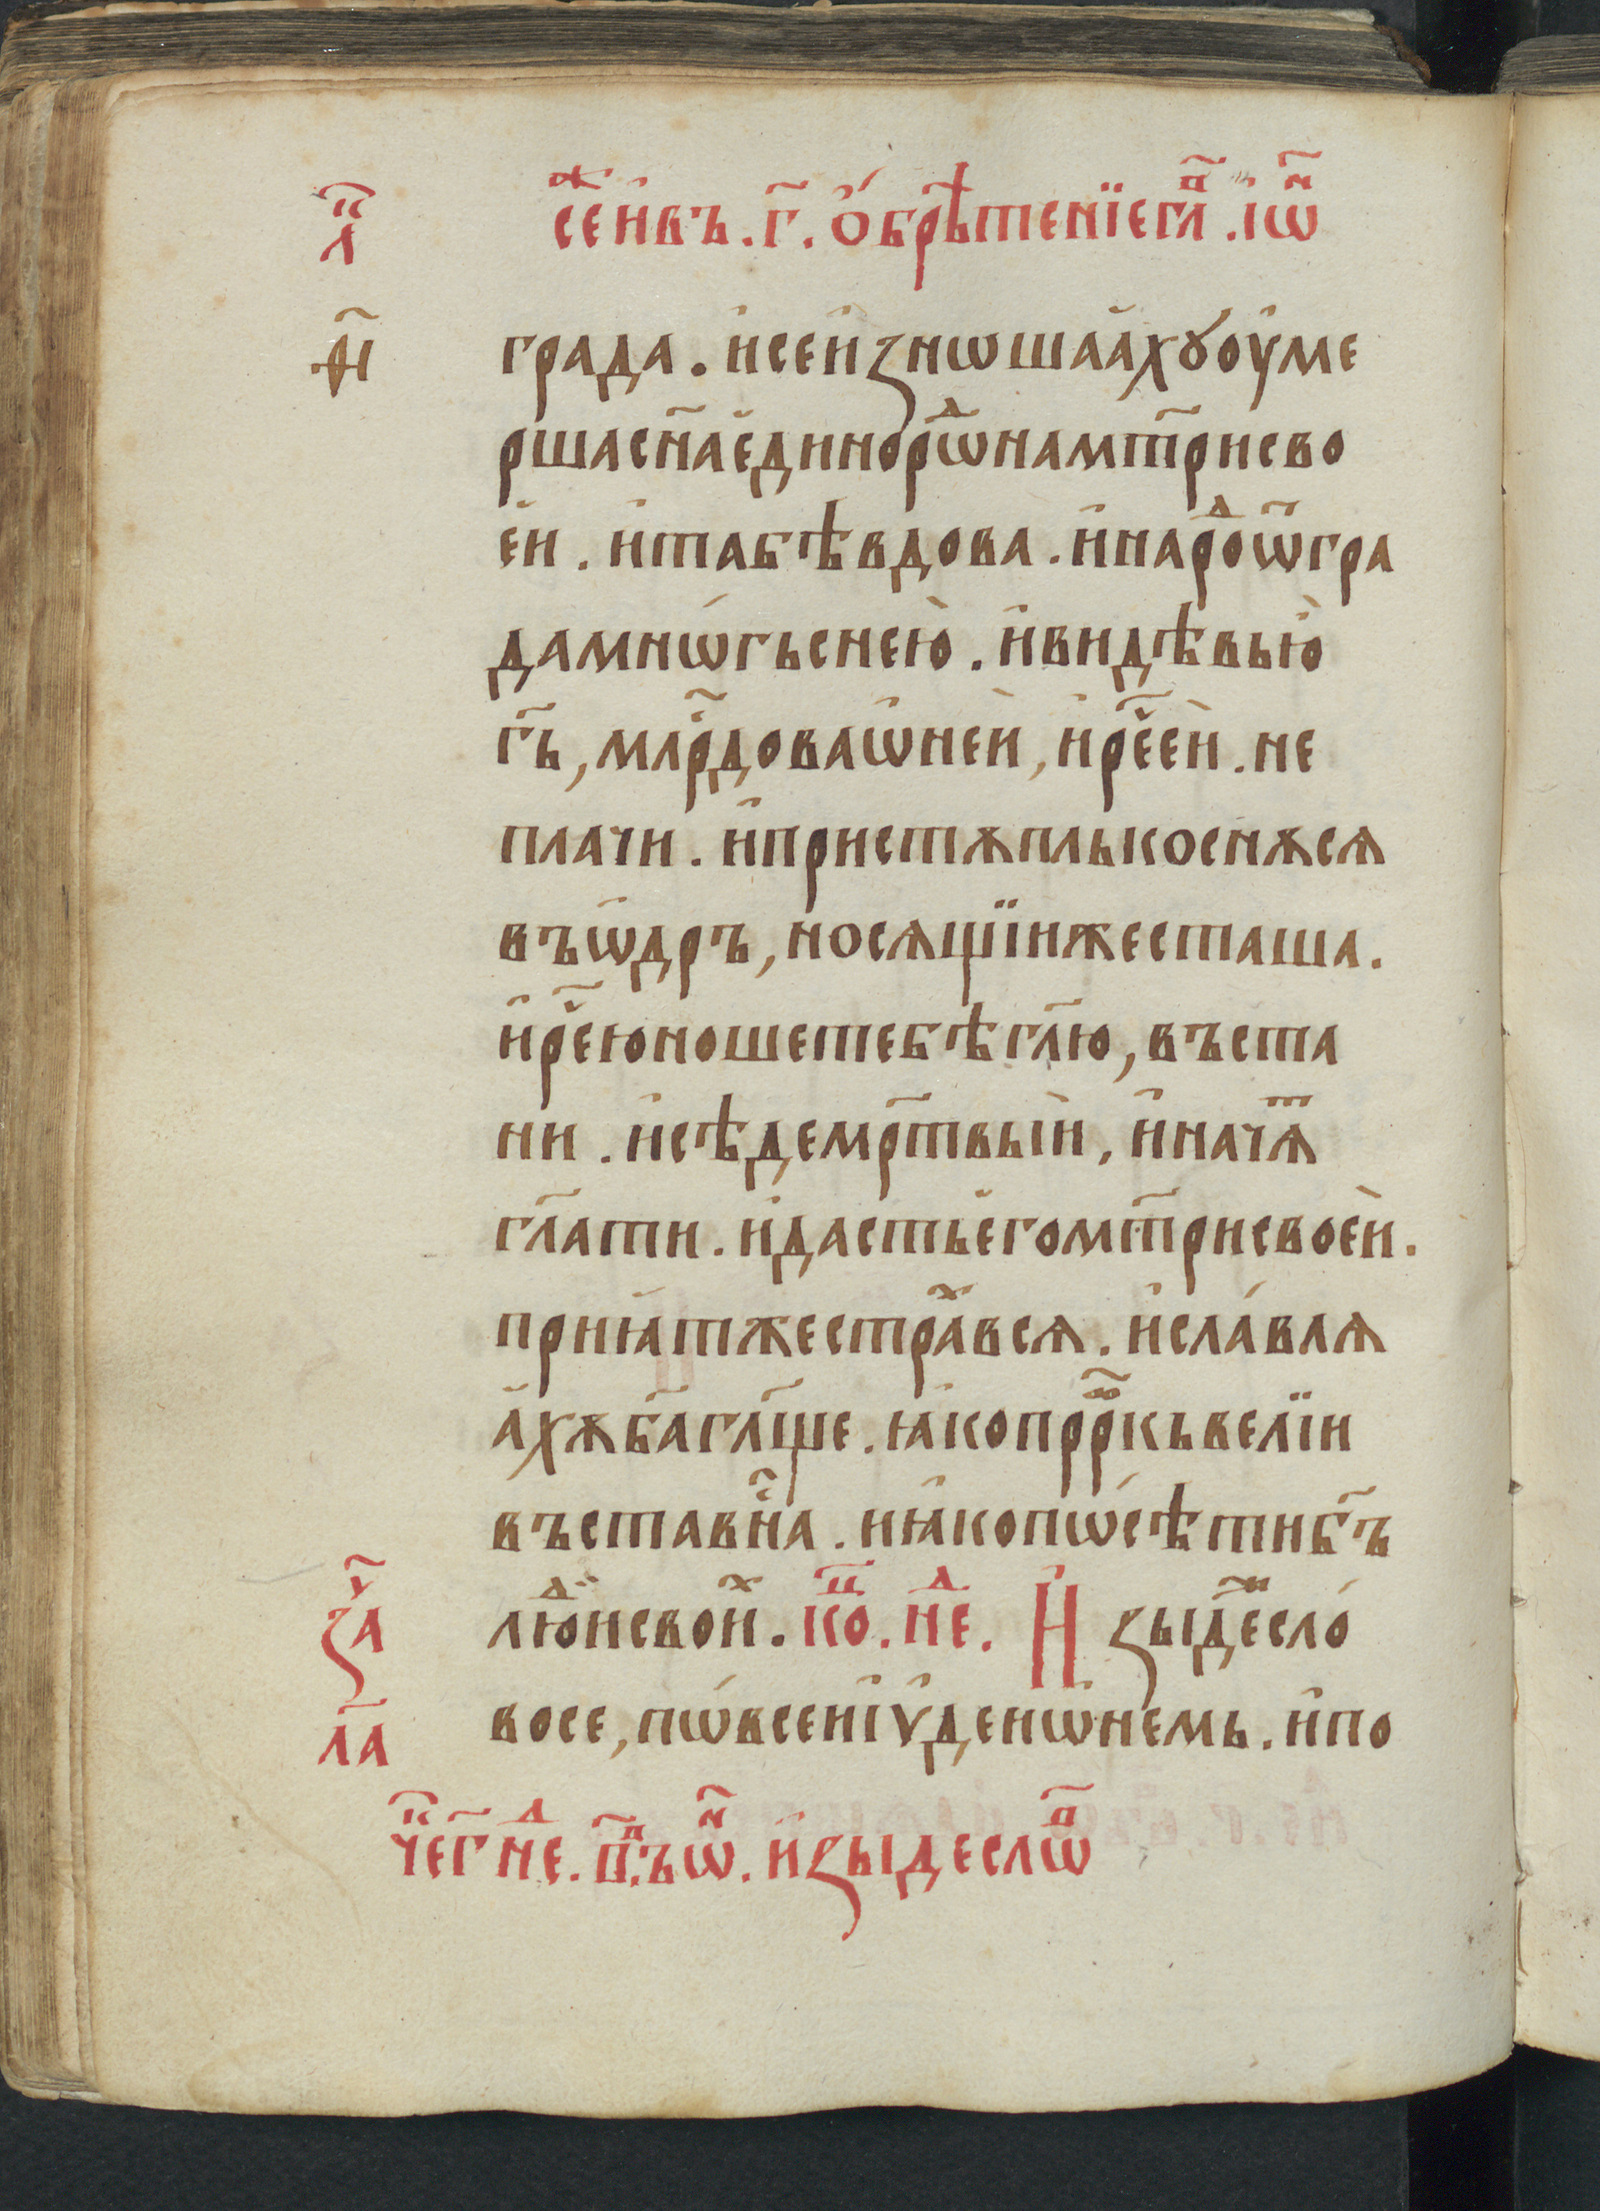 л҃ц се́ же и҆ въ . г҃ . ѻ҆брѣ́тенїе гл҃в . і҆ѡ҃н
н҃ града . и҆ се и҆ꙁнѡшаа҆хꙋ оу҆ме
рша сн҃а е҆динорѡⷣна мт҃ри сво
е҆и . и҆ та бѣ вдова . и҆ нароⷣ ѿ гра
да мнѡ́гь с нею̀ . и҆ видѣвь ю҆̀
г҃ь , млⷭ҇рдова ѡ҆ неи , и҆ рⷱ҇е е҆и . не
плачи . и҆ пристѫпль коснѫсѧ
въ ѡ҆дръ , носѧщїи же сташа .
и҆ рⷱ҇е юноше тебѣ гл҃ю , въста
ни . и҆ сѣде мр҃твыи , и҆ начѧⷮ
гл҃ати . и҆ дасть е҆го мт҃ри своеи .
прии҆ат же страⷯ всѧ . и҆ сла́влѧ
а҆хѫ б҃а гл҃ще . ꙗ҆ко прⷪ҇ркь велїи
въста в нⷭ҇а . и ꙗ҆ко пѡсѣти б҃ъ
ꙁ҃ач люⷣи своиⷯ . коⷰ҇ . неⷣ . И҆ꙁыⷣе сло́
л҃а во се , пѡ́ всеи і҆ѵ҆деи ѡ҆ немь . и҆ по
чеⷭ҇ г҃ неⷣ . пⷣ ъ ѡ҃н . и҆ꙁыде слѡ҃в